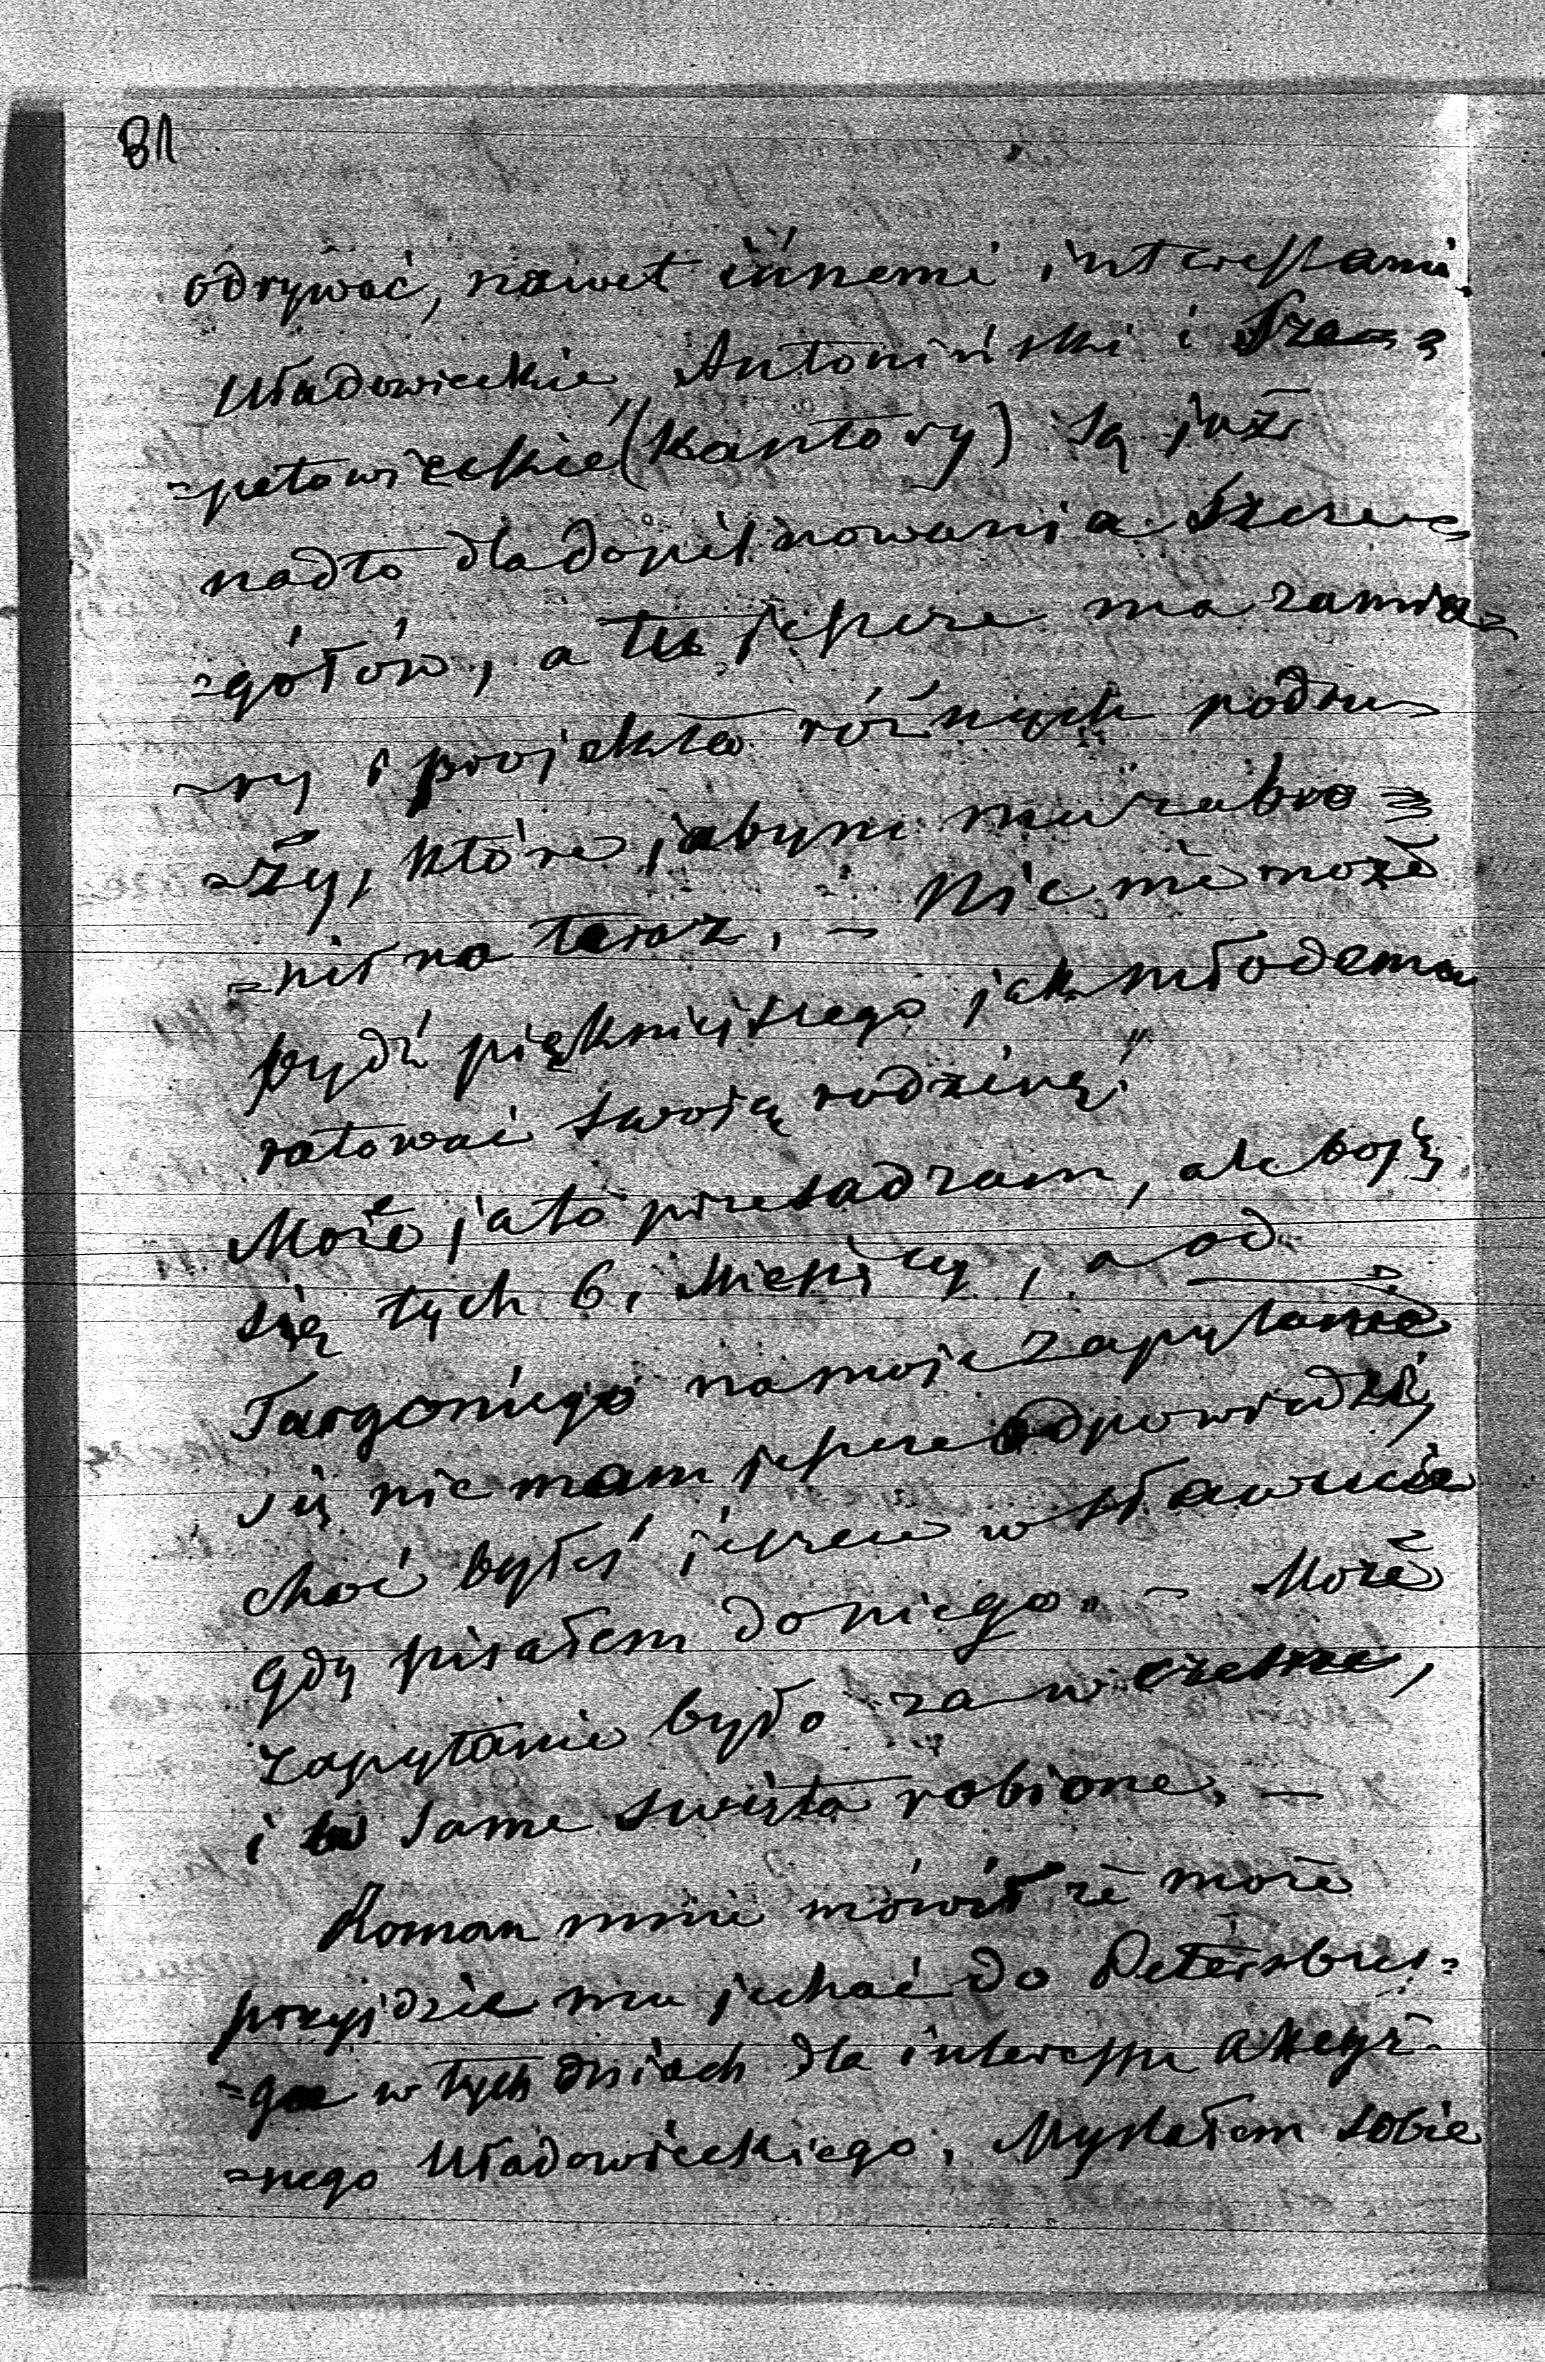 81
odrywać, nawet innemi interessami.
Uładowieckie, Antoniński i Sze=
=petowieckie (Kantory) są już
nadto dla dopilnowania Szcze=
=gółów, a tu jeszcze ma zamia=
=ry i projekta różnych podró=
=ży, które jabym mu zabro=
=nił na teraz. – Nic nie może
bydź piękniejszego jak młodemu
ratować swoją rodzinę!
Może ja to przesadzam, ale boję
się tych 6. Miesięcy, a od
Targoniego na moje zapytanie
się nie mam jeszcze odpowiedzi,
choć byłeś jeszcze w Sławucie
gdy pisałem do niego. – Może
zapytanie było za wczesne,
i w same święta robione. –
Roman mnie mówił że może
przyjdzie mu jechać do Petersbur=
=ga w tych dniach dla interessu akcyź=
=nego Uładowieckiego. Myślałem sobie